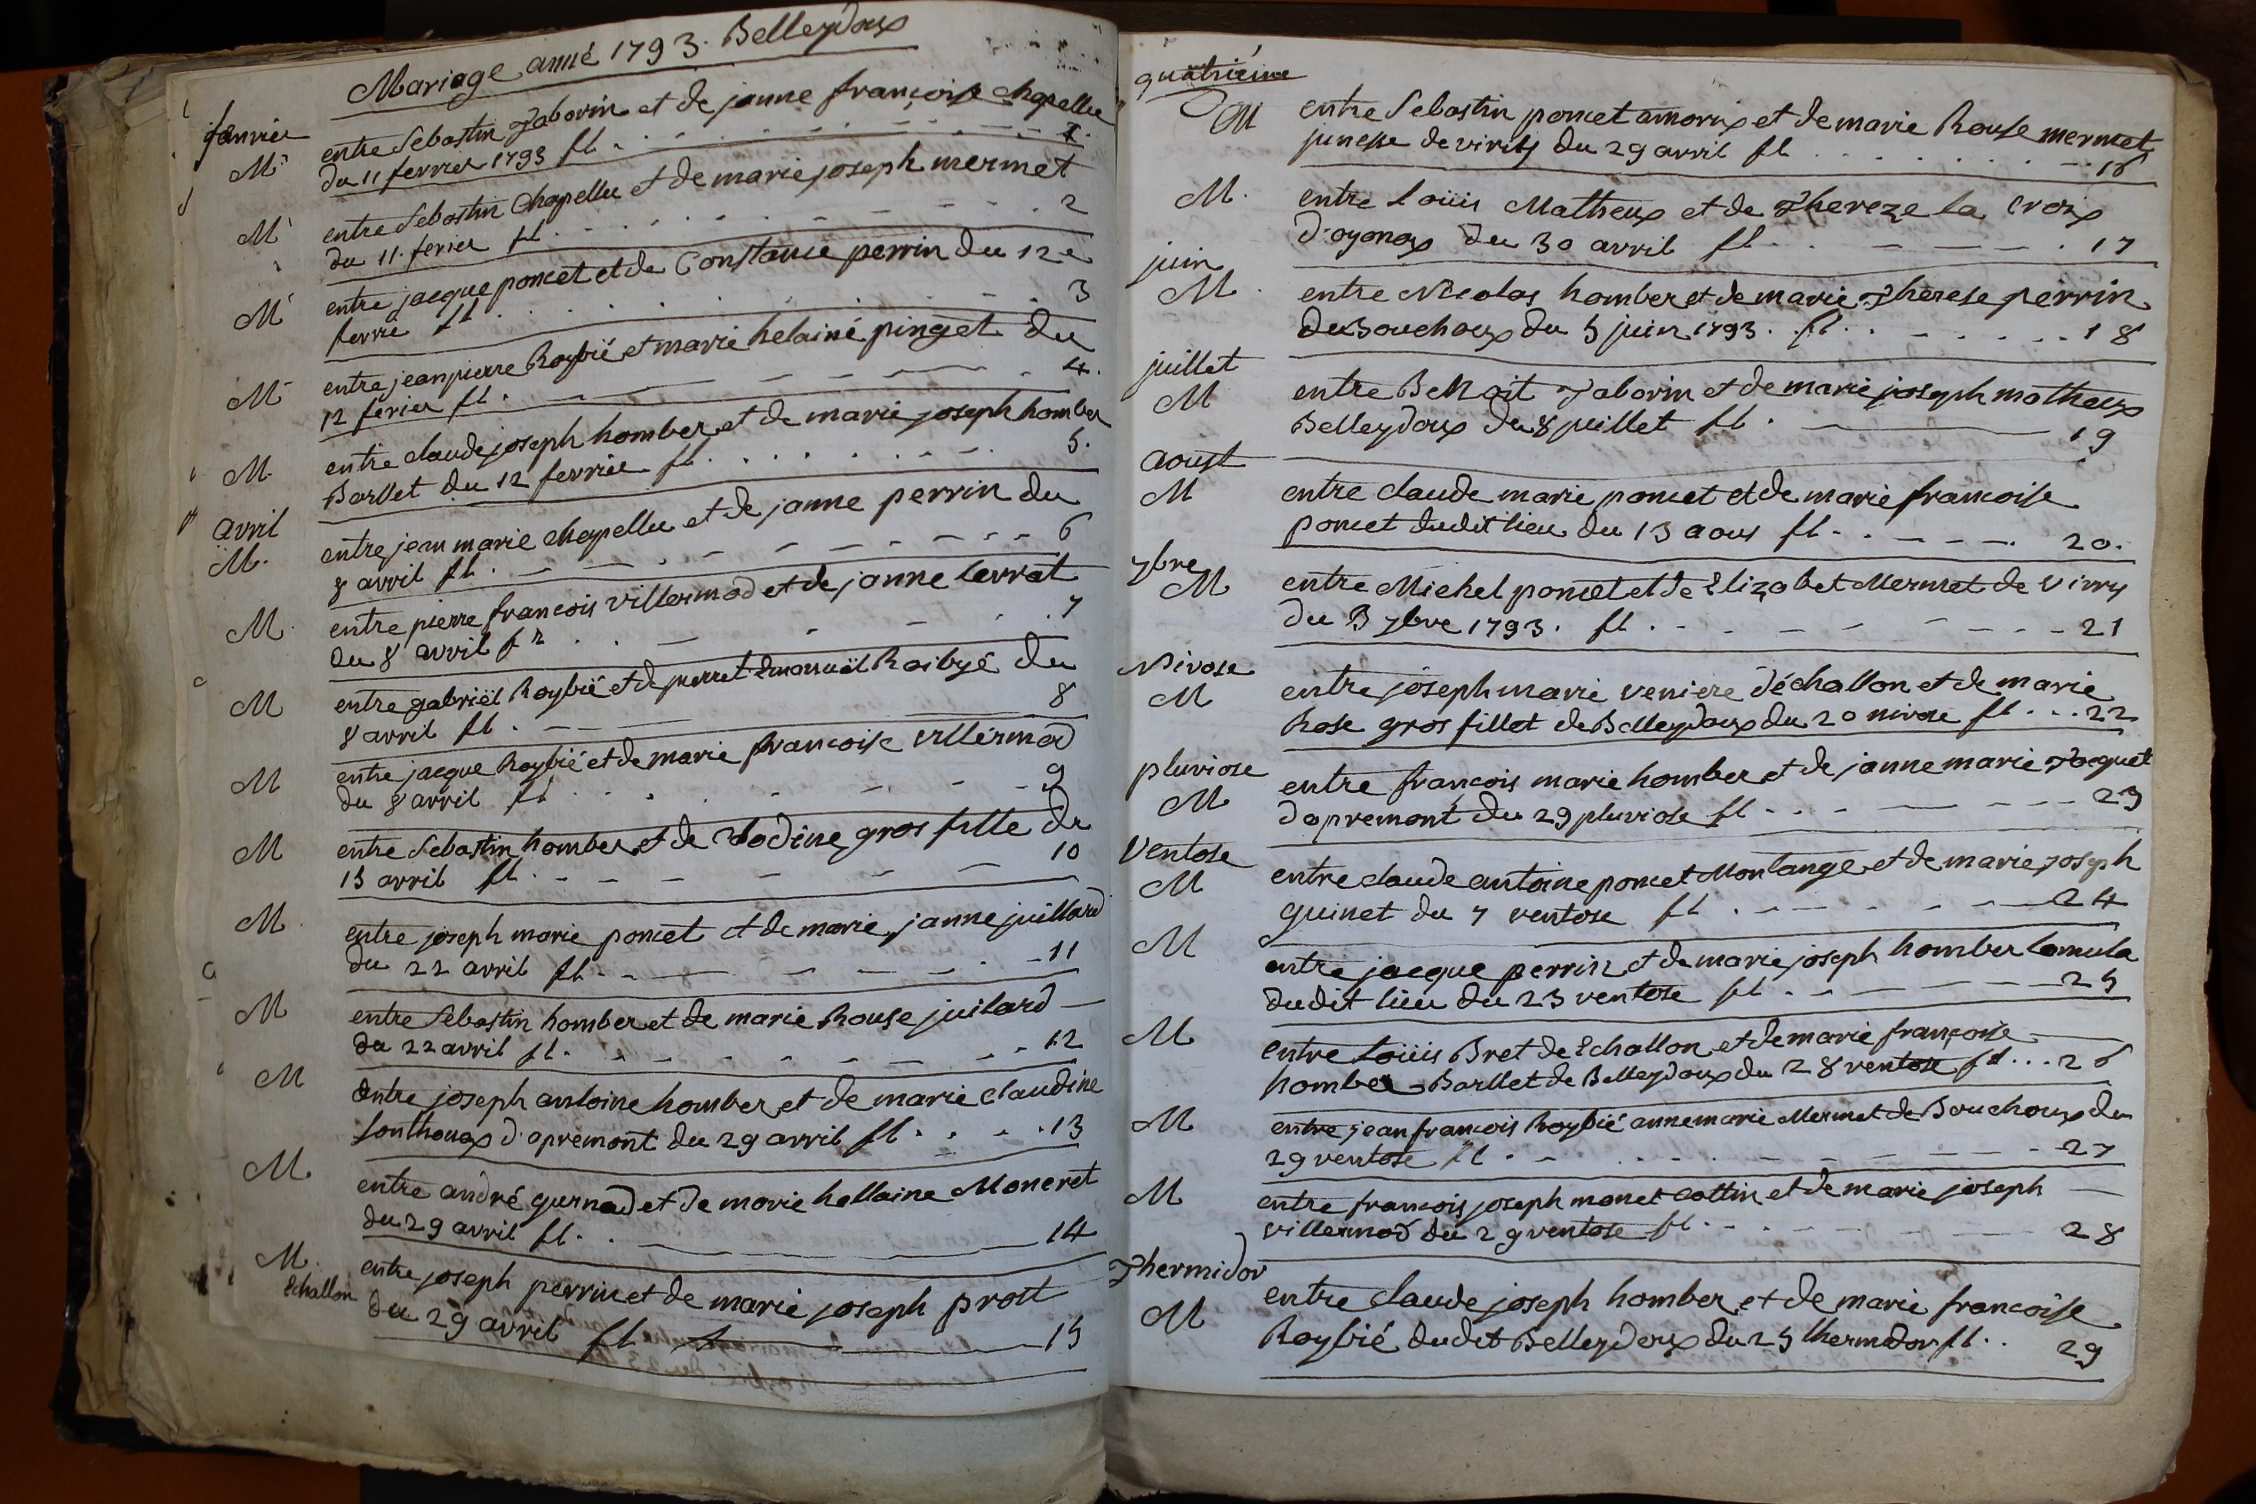 Mariage anné 1793. Belleydoux
janvier
M entre Sebastin Taborin et de janne françoise chapellu
du 11 ferrier 1793 fl. 1.
M entre Sebastin Chapellu et de marie joseph mermet
du 11. ferier fl. 2
M entre jacque poncet et de Constance perrin du 12e
ferrie fl 3
M entre jean pierre Roybié et marie helainé pinget du
12 ferier fl. 4.
M entre claude joseph homber et de marie joseph homber
Barllet du 12 ferrier fl. 5.
avril
M. entre jean marie chapellu et de janne perrin du
8 avril fl. 6
M entre pierre francois villermod et de janne levrat
du 8 avril fl 7
M entre gabriël Roybié et de pierret Emanuël Roibyé du
8 avril fl. 8
M entre jacque Roybié et de marie francoise villermod
du 8 avril fl 9
M entre Sebastin homber et de clodine gros fille du
15 avril fl. 10
M entre joseph marie poncet et de marie janne juillard
du 22 avril fl. 11
M entre Sebastin homber et de marie Rouse juilard
du 22 avril fl. 12
M entre joseph antoine homber et de marie claudine
Sonthoux d'apremont du 29 avril fl. 13
M entre andré gurnad et de marie hellaine Moneret
du 29 avril fl. 14
M. entre joseph perrin et de marie joseph prost
Echallon du 29 avril fl 15
quatriéme
M entre Sebastin poncet amorix et de marie Rouse mermet
junesse de viry du 29 avril fl 16
M. entre Loüis Matheux et de Thereze la croix
d'oyonax du 30 avril fl. 17
juin
M entre Nicolas homber et de marie Therese perrin
du Bouchoux du 5 juin 1793. fl. 18
juillet
M entre Benoit Taborin et de marie joseph matheux
Belleydoux du 8 juillet fl. 19
aoust
M entre claude marie poncet et de marie francoise
poncet dudit lieu du 13 aous fl. 20.
7bre
M entre Michel poncet et de Elizabet Mermet de Viry
du 3 7bre 1793. fl. 21
Nivose
M entre joseph marie veniere d'échallon et de marie
Rose gros fillet de Belleydoux du 20 nivose fl. 22
pluviose
M entre françois marie homber et de janne marie Jacquet
dapremont du 29 pluviose fl 23
Ventose
M entre claude antoine poncet Montange et de marie joseph
guinet du 7 ventose fl. 24
M entre jacque perrin et de marie joseph homber Lamula
dudit lieu du 23 ventose fl. 25
M entre Loüis Bret de Echallon et de marie françoise
homber Barllet de Belleydoux du 28 ventose fl. 26
M entre jean francois Roybié anne marie Mermet de Bouchoux du
29 ventose fl. 27
M entre francois joseph monet cottin et de marie joseph
villermod du 29 ventose fl. 28
Thermidor
M entre claude joseph homber et de marie francoise
Roybié dudit Belleydoux du 25 thermidor fl. 29